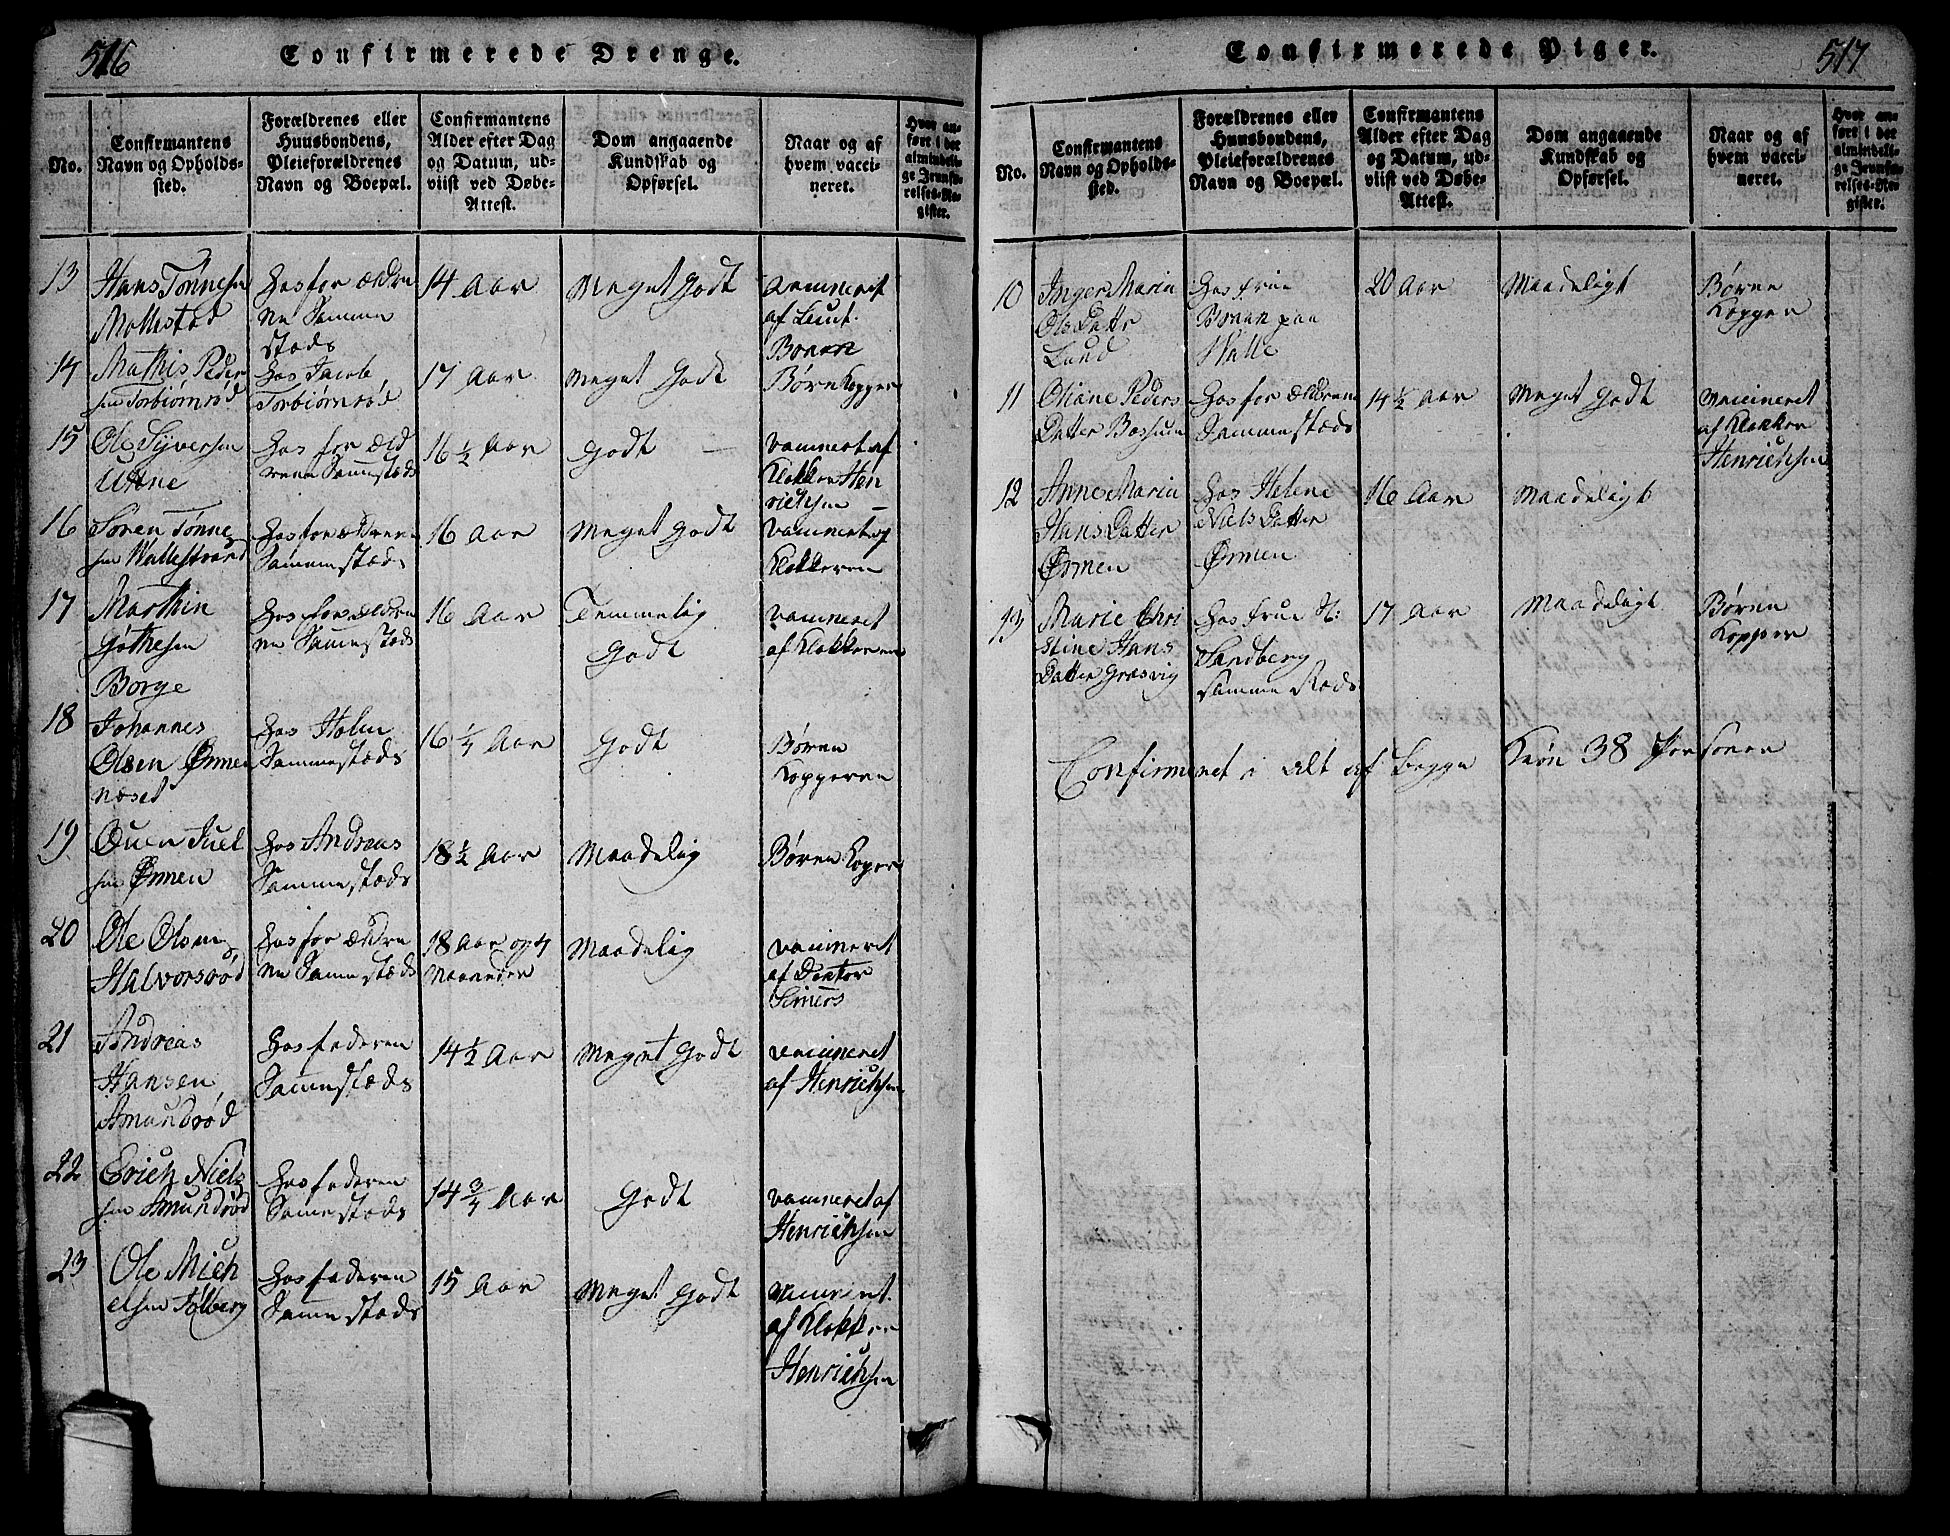 516
Confirmerede Drenge.
No.
Confirmantens
Navn og Opholds-
sted.
Forældrenes eller
Huusbondens,
Pleieforældrenes
Navn og Boepæl.
Confirmantens
Alder efter Dag
og Datum, ud-
viist ved Døbe-
Attest.
Dom angaaende
Kundskab og
Opførsel.
Naar og af
hvem vacci-
neret.
Hvor an-
ført i det
almindeli-
ge Jevnfø-
relses-Re-
gister.
13
Hans Tønnesen
Mollestad
hos foræld
ne Samme
steds
14 Aar
Meget Godt
af Leut.
14
Mathis Peder
sen Torbiørnrød
hos Jacob
Torbiørnrød
17 Aar
Meget Godt
Børnkopper
15
Ole Syversen
Utne
hos foræld
rene Sammesteds
16 1/2 Aar
Godt
af
Klokker Hen
richsen
16
Søren Tønne
sen Wallestrand
hos forældrene
Sammesteds
16 Aar
Meget Godt
Klokkeren
17
Marthin
Gothesen
Borge
hos forældre
ne Sammesteds
16 Aar
Temmelig
Godt
af Klokkeren
18
Johannes
Olsen Ørmen
næset
hos Holm
Sammesteds
16 1/4 Aar
Godt
Børen
Kopperne
19
Ouen Juel
sen Ørmen
hos Andreas
Sammesteds
18 1/2 Aar
Maadelig
Børen Koper
20
Ole Olsen
Halvorsrød
hos forældre
ne Sammesteds
18 Aar og 4
Maaneder
Maadelig
af Doktor
21
Andreas
Hansen
Amundrød
hos faderen
Sammesteds
14 1/2 Aar
Meget Godt
vacineret
af Henrichsen
22
Erich Niels
sen Amundrød
hos faderen
Sammesteds
14 3/4 Aar
Godt
af
Henrichsen
23
Ole Mich
elsen Tolberg
hos faderen
Sammesteds
15 Aar
Meget Godt
af Klokker
Henrichsen
Confirmerede Piger.
517
No.
Confirmantens
Navn og Opholds-
sted.
Forældrenes eller
Huusbondens,
Pleieforældrenes
Navn og Boepæl.
Confirmantens
Alder efter Dag
og Datum, ud-
viist ved Døbe-
Attest.
Dom angaaende
Kundskab og
Opførsel.
Naar og af
hvem vacci-
neret.
Hvor an-
ført i det
almindeli-
ge Jevnfø-
relses-Re-
gister.
10
Inger Maria
Ols Datter
Lund
hos frue
paa
20 Aar
Maadeligt
Børne
Kopper
11
Oliane Peders
Datter Bossum
hos forældrene
Sammesteds
14 1/2 Aar
Meget Godt
vacineret
af Klokker
Henrichsen
12
Anne Maria
Hans Datter
Ørmen
hos Helene
Niels Datter
Ørmen
16 Aar
Maadeligt
13
Marie Chri
stine Hans
Datter Græsvig
hos frue H:
Sandberg
samme Steds
17 Aar
Maadeligt
Børen
Kopper
Confirmeret i alt af begge Kiøn 38 Personer